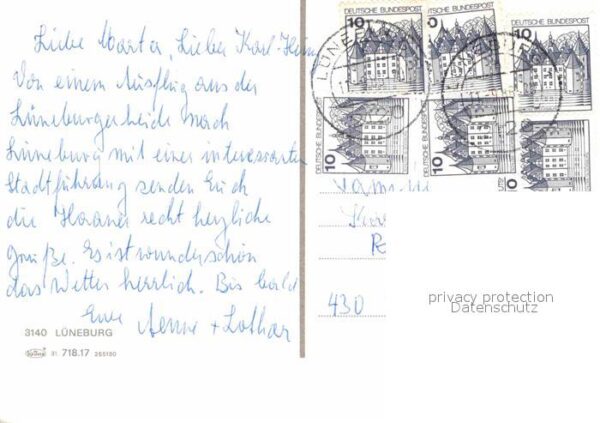 Liebe Marta, Lieber Karl-Heinz
Von einem Ausflug aus der
Lüneburgerheide nach
Lüneburg mit einer interessanten
Stadtführung senden Euch
die Haaner recht herzliche
Grüße. Es ist wunderschön
das Wetter herrlich. Bis bald
Eure Aenne + Lothar
3140 LÜNEBURG
31 718.17 255130
DEUTSCHE BUNDESPOST
10
10
DEUTSCHE BUNDESPOST
10
LÜNEBURG
LÜNEBURG
DEUTSCHE BUNDESPOST
10
DEUTSCHE BUNDESPOST
10
430
privacy protection
Datenschutz